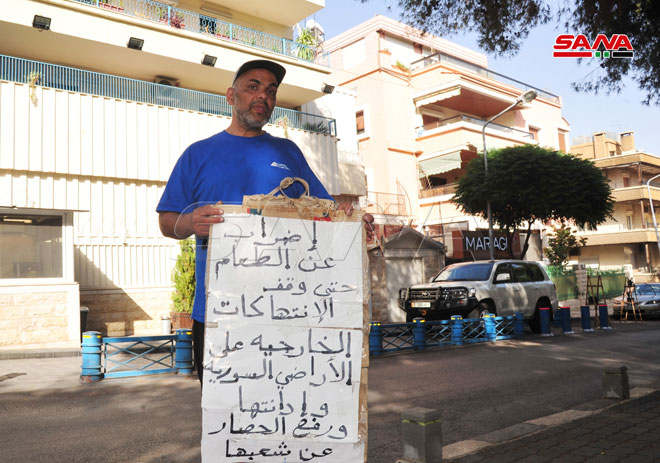 SANA
MARIAGI
إضراب
عن الطعام
حتى وقف
الإنتهاكات
الخارجيه على
الأراضي السورية
وإدانتها
ورفع الحصار
عن شعبها